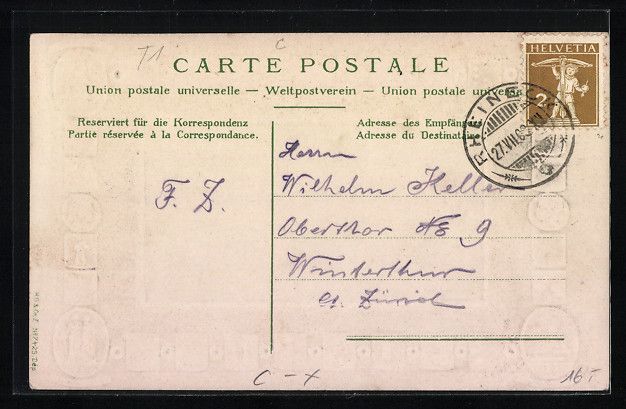 T1
c
CARTE POSTALE
Union postale universelle — Weltpostverein — Union postale universelle
HELVETIA
2
RHEINECK
27.VII.09
Reserviert für die Korrespondenz
Partie réservée à la Correspondance.
Adresse des Empfängers
Adresse du Destinataire
F. Z.
Herrn
Wilhelm Keller
Oberthor No 9
Winterthur
Ct. Zürich
C - x
16 -